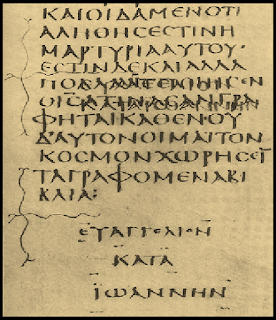 ΚΑΙΟΙΔΑΜΕΝΟΤΙ
ΑΛΗΘΗϹΕϹΤΙΝΗ
ΜΑΡΤΥΡΙΑΑΥΤΟΥ·
ΕϹΤΙΝΔΕΚΑΙΑΛΛΑ
ΦΗΤΑΙΚΑΘΕΝ·ΟΥ
Δ'ΑΥΤΟΝΟΙΜΑΙΤΟΝ
ΚΟϹΜΟΝΧΩΡΗϹΕΙ̅
ΤΑΓΡΑΦΟΜΕΝΑΒΙ
ΒΛΙΑ:
ΕΥΑΓΓΕΛΙΟΝ
ΚΑΤΑ
ΙΩΑΝΝΗΝ